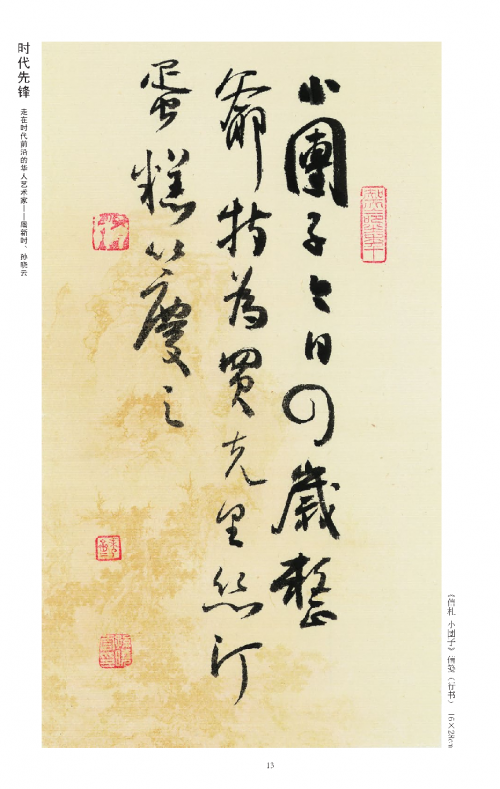 时代先锋
走在时代前沿的华人艺术家——周新时、孙晓云
小團子今日四歲整
爺特為買克里絲汀
蛋糕以慶之
《信札 小团子》信笺（行书） 16×28cm
13